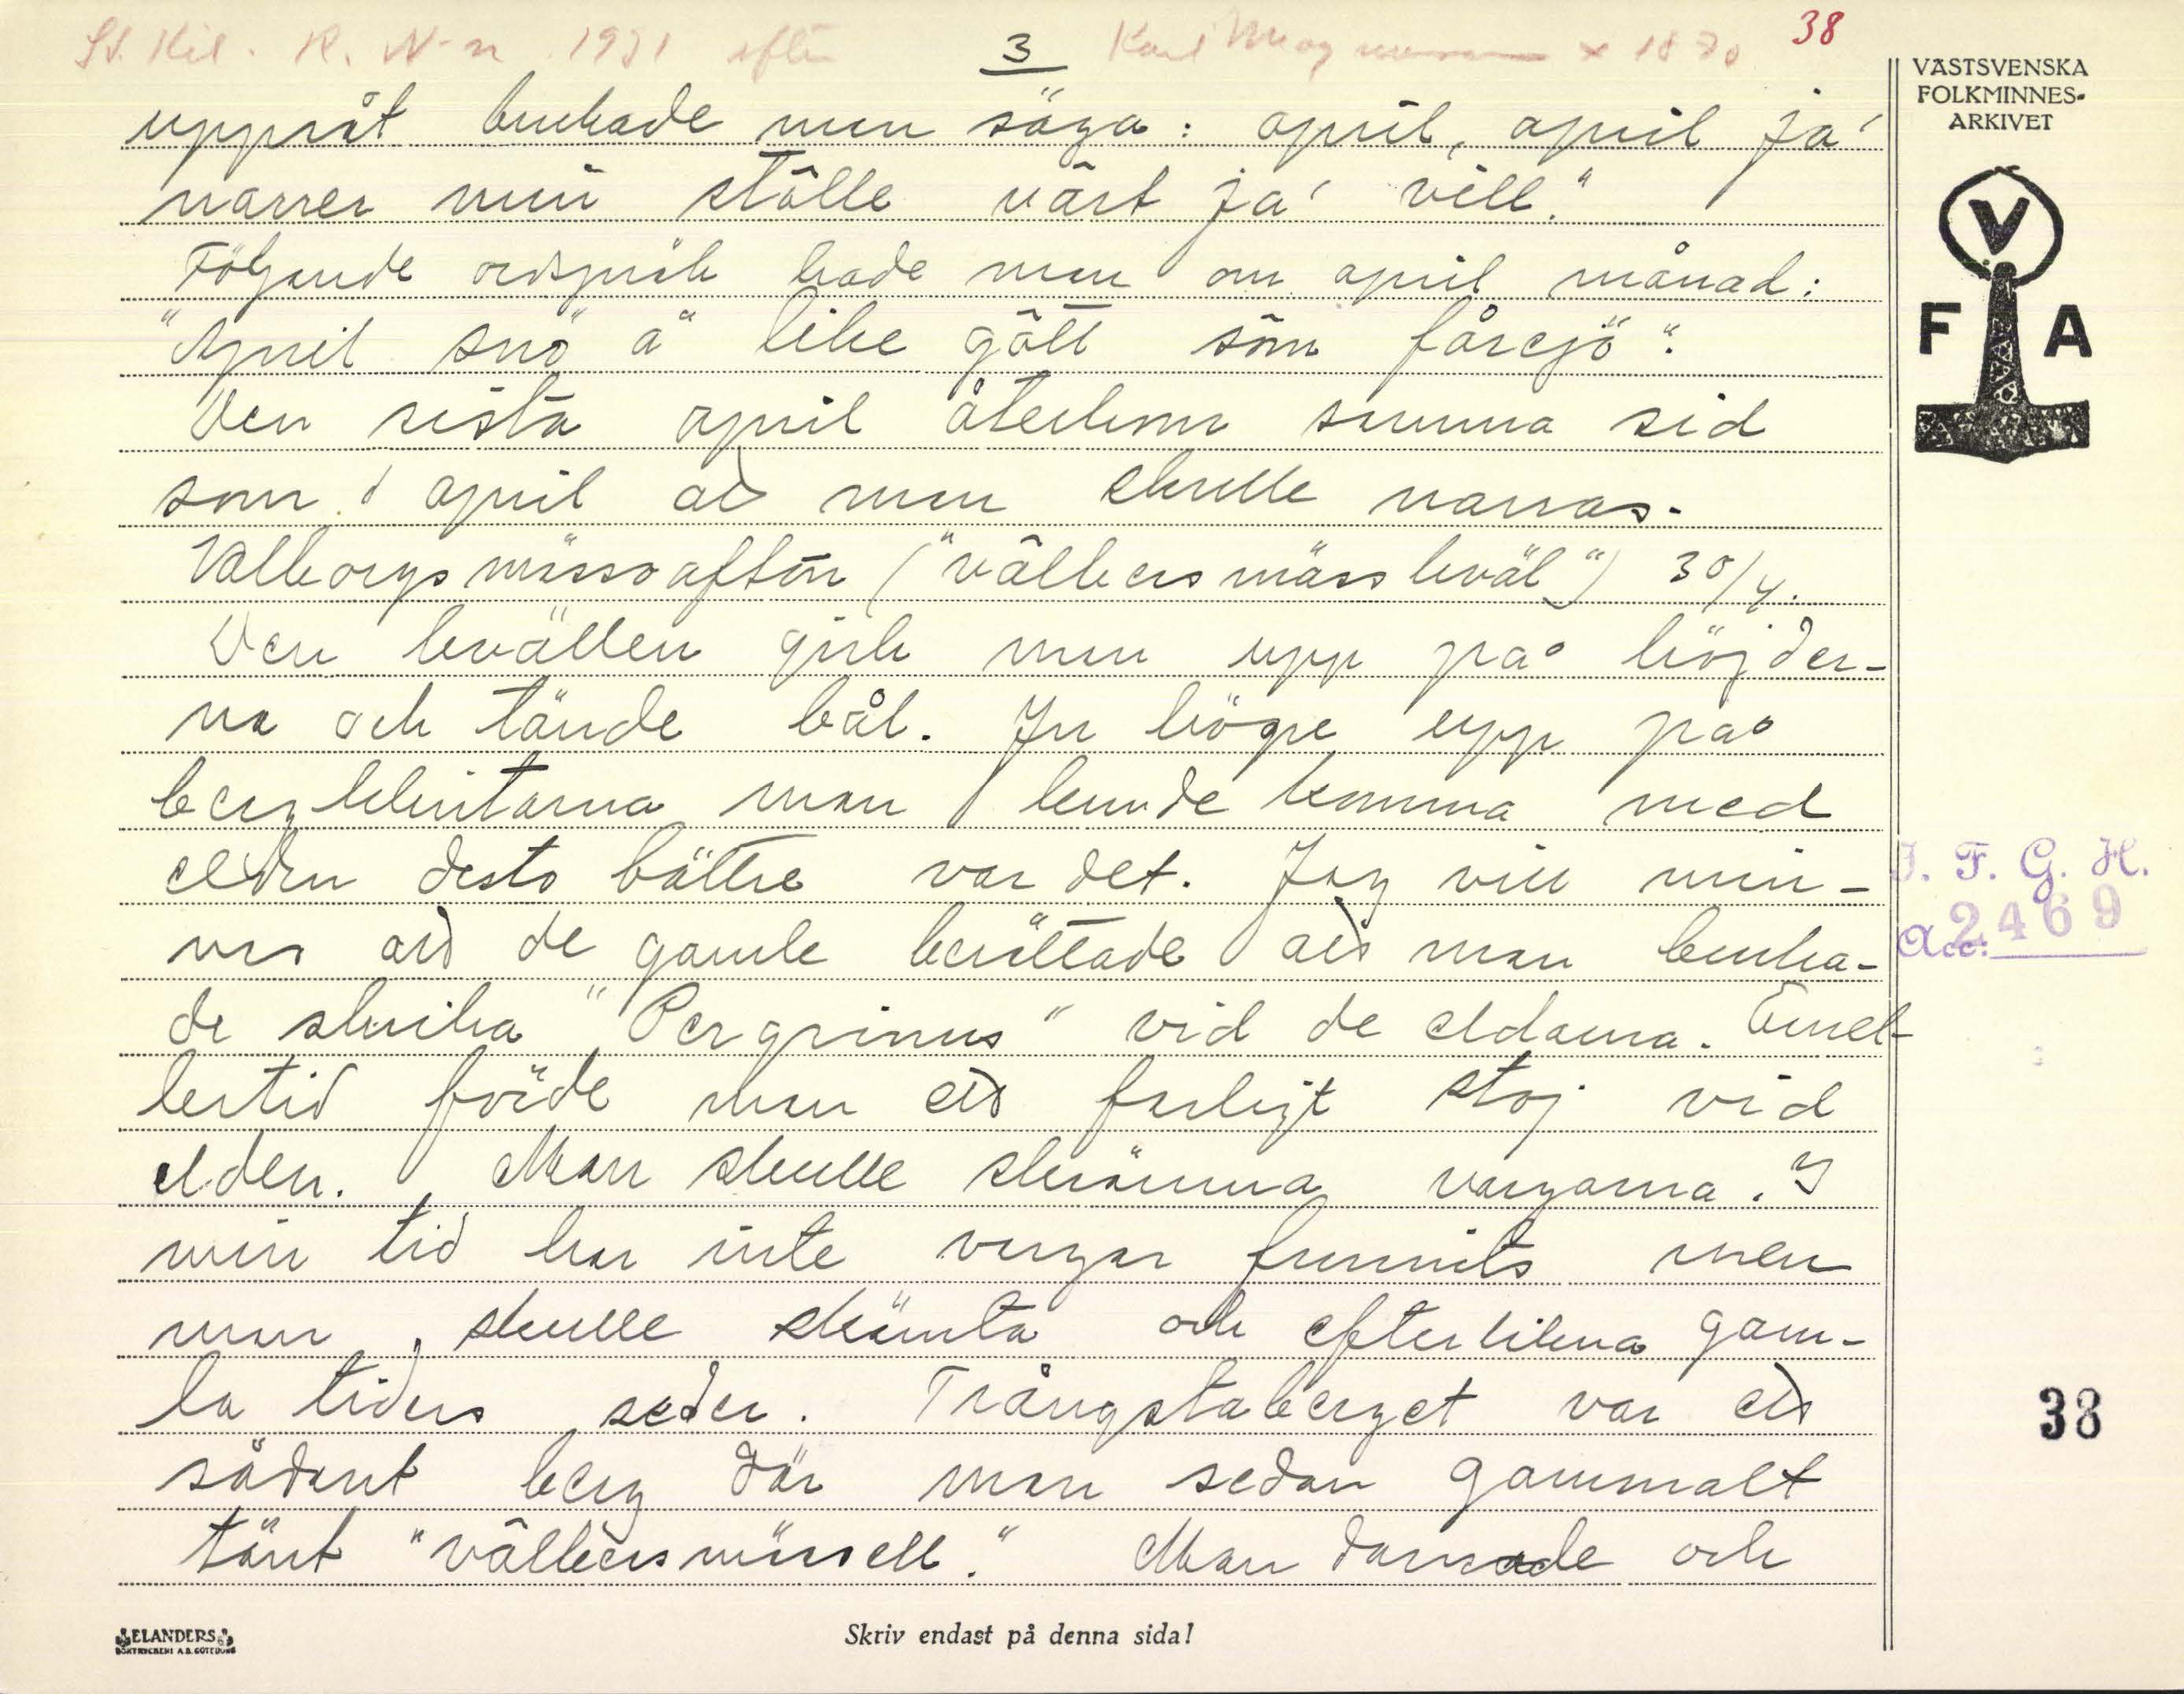 St. Kil. R. N-n 1931 efter
3
Karl Magnusson x 1870
38
uppnåt brukade man säga: april, april ja'
narrer min ställe vart ja' vill."
Följande ordspråk hade man om april månad:
"April snö ä like gött som fårejö".
Den sista april återkom samma sid
som 1 april att man skulle narras.
Valborgsmässoafton ("vâlbersmässkväl") 30/4.
Den kvällen gick man upp på höjder-
na och tände bål. Ju högre upp på
bergklintarna man kunde komma med
elden desto bättre var det. Jag vill min-
nas att de gamle berättade att man bruka-
de skrika "Pergrinus" vid de eldarna. Emel-
lertid förde man ett farligt stoj vid
elden. Man skulle skrämma vargarna. I
min tid har inte vargar funnits men
man skulle skämta och efterlikna gam-
la tiders seder. Trångstaberget var ett
sådant berg där man sedan gammalt
tänt "vâlbersmässell." Man dansade och
VÄSTSVENSKA
FOLKMINNES-
ARKIVET
V
F A
I. F. G. H.
Acc: 2469
38
ELANDERS
BOKTRYCKERI A.B. GÖTEBORG
Skriv endast på denna sida!